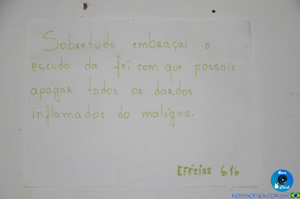 Sobretudo embraçai o
escudo da fé, com que possais
apagar todos os dardos
inflamados do maligno.
Efésios 6.16